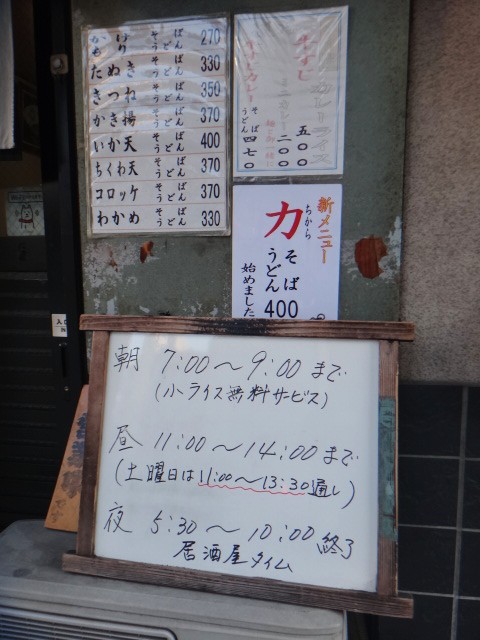 かけ そば うどん 270
たぬき そば うどん 330
きつね そば うどん 350
かき揚 そば うどん 370
いか天 そば うどん 400
ちくわ天 そば うどん 370
コロッケ そば うどん 370
わかめ そば うどん 330
牛すじ カレーライス 五〇〇
ミニカレー 二〇〇
牛すじカレー そば うどん 四七〇
新メニュー
力 ちから
そば うどん 400
始めました
朝 7:00〜9:00まで
(小ライス無料サービス)
昼 11:00〜14:00まで
(土曜日は11:00〜13:30通し)
夜 5:30〜10:00終了
居酒屋タイム